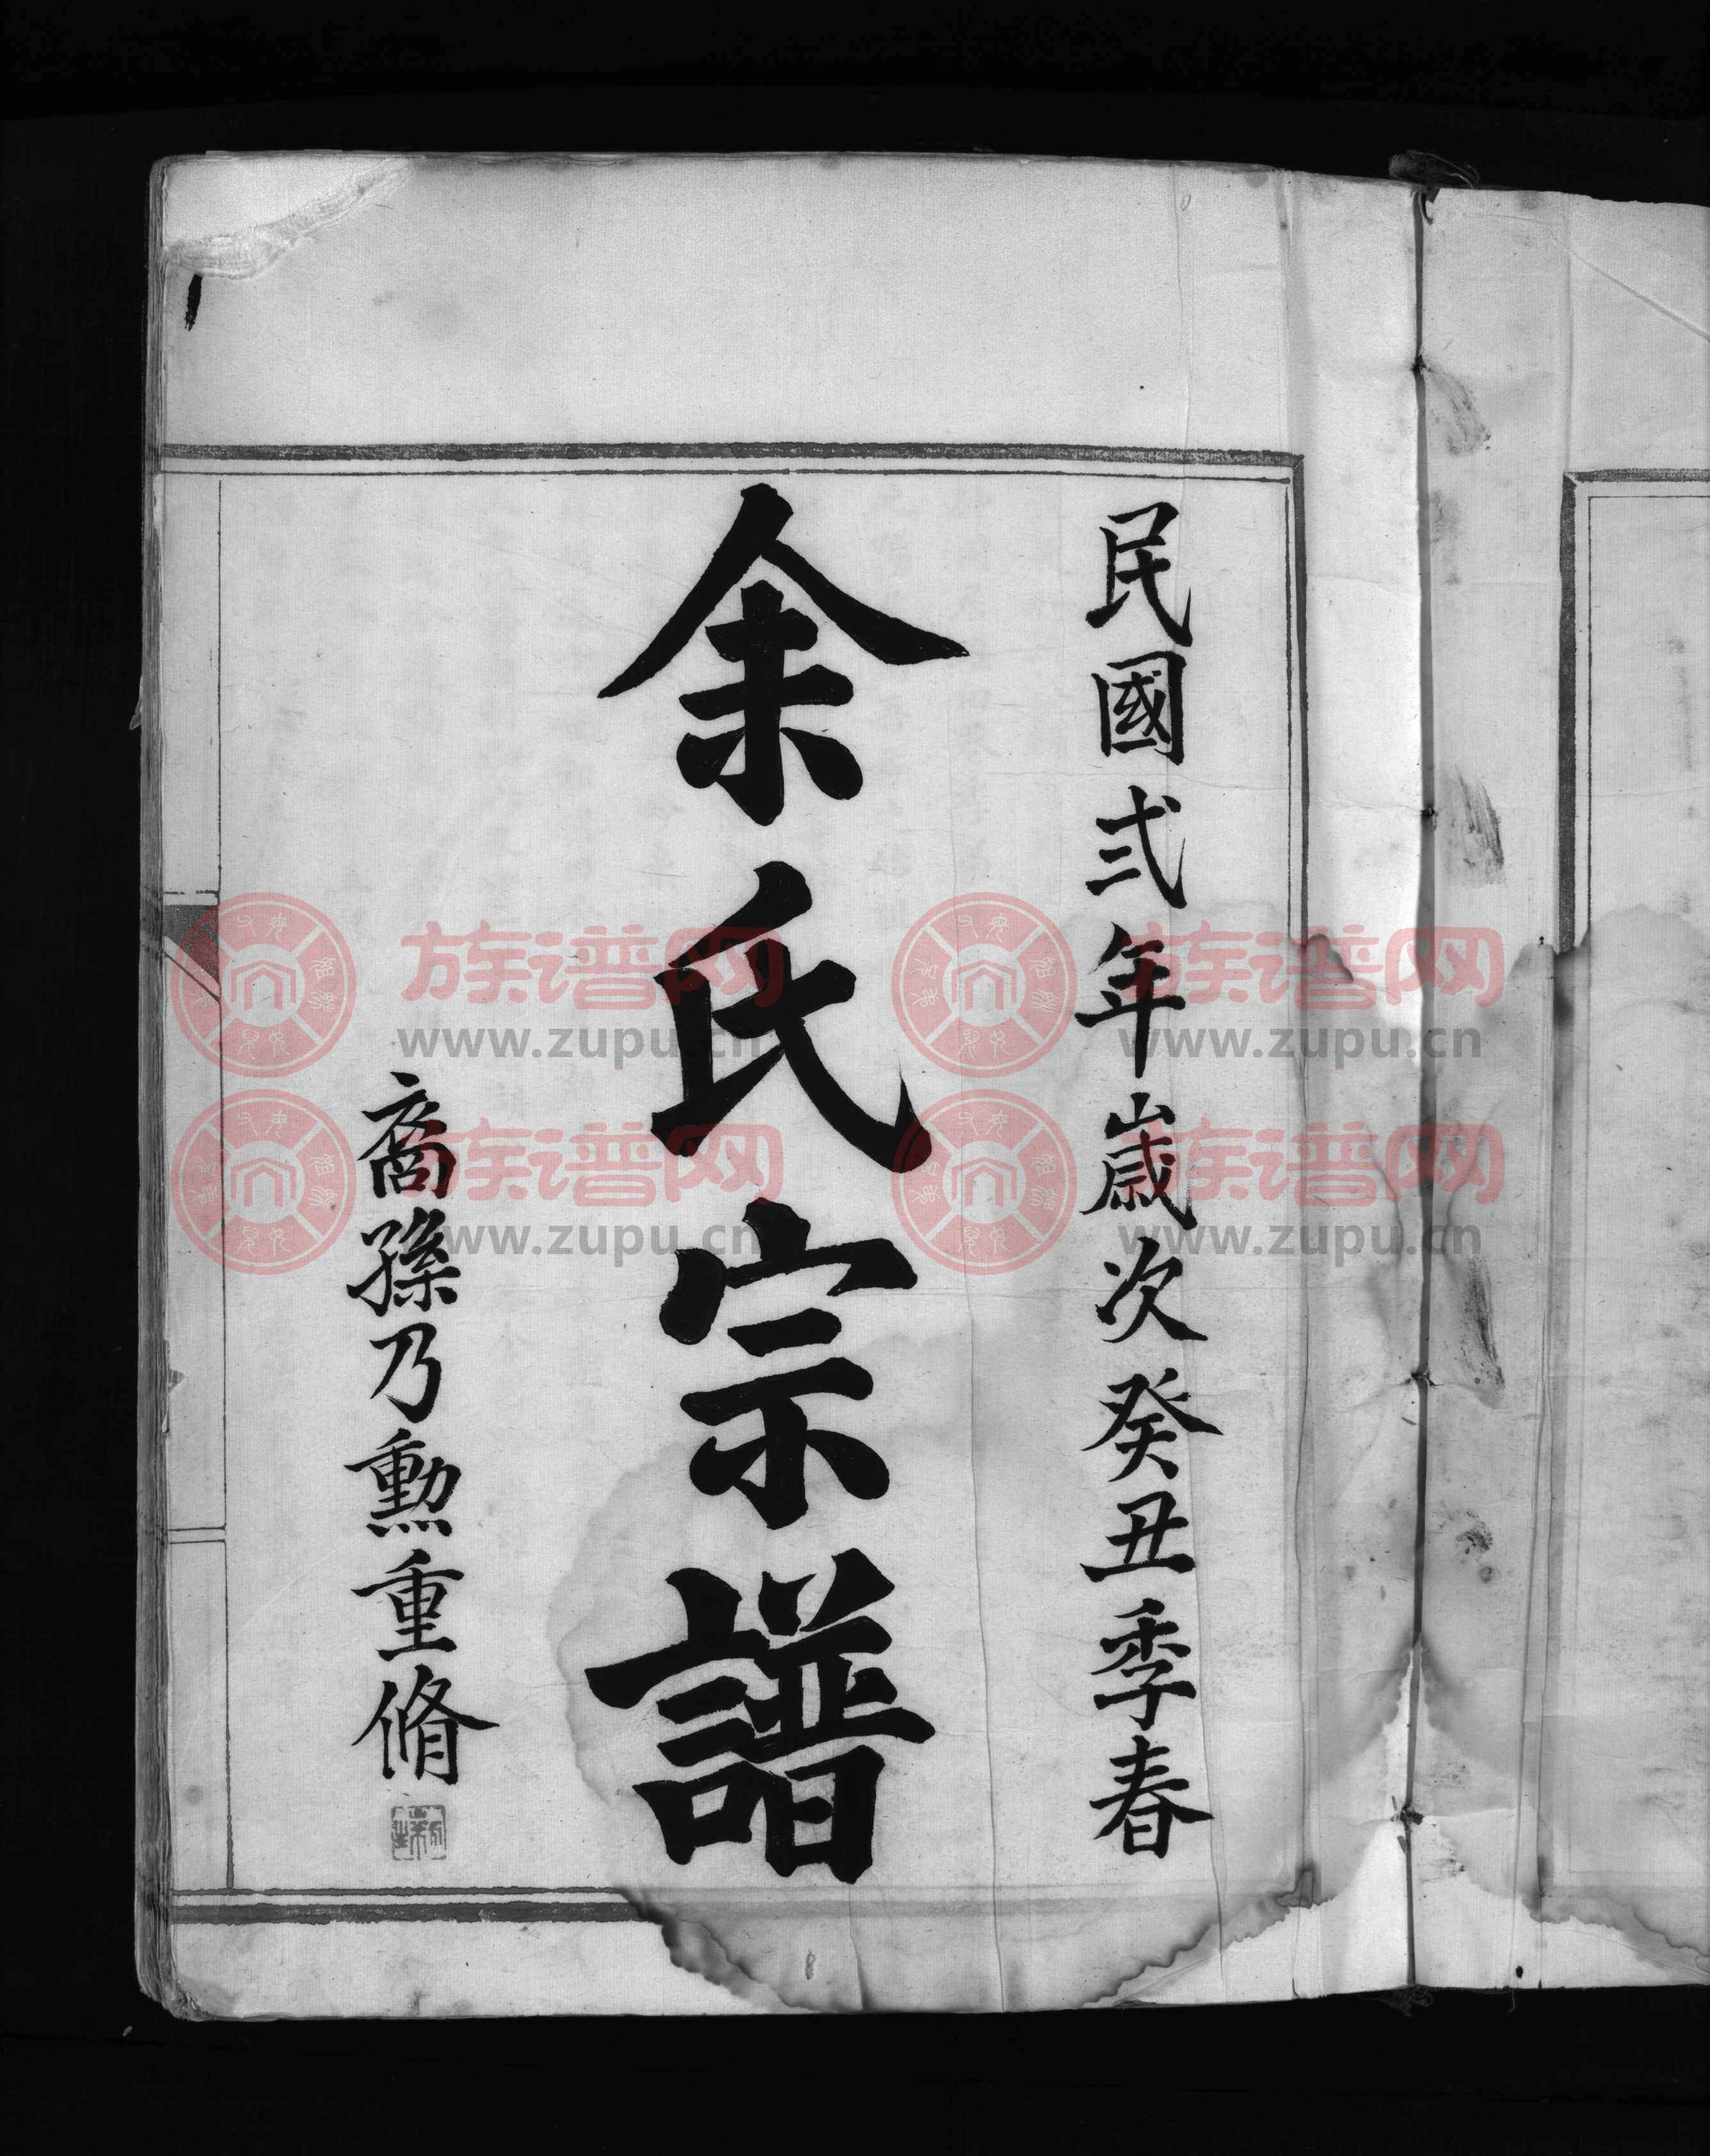 民國弍年歲次癸丑季春
余氏宗譜
裔孫乃勳重脩
族谱网
www.zupu.cn
族谱网
www.zupu.cn
族谱网
www.zupu.cn
族谱网
www.zupu.cn